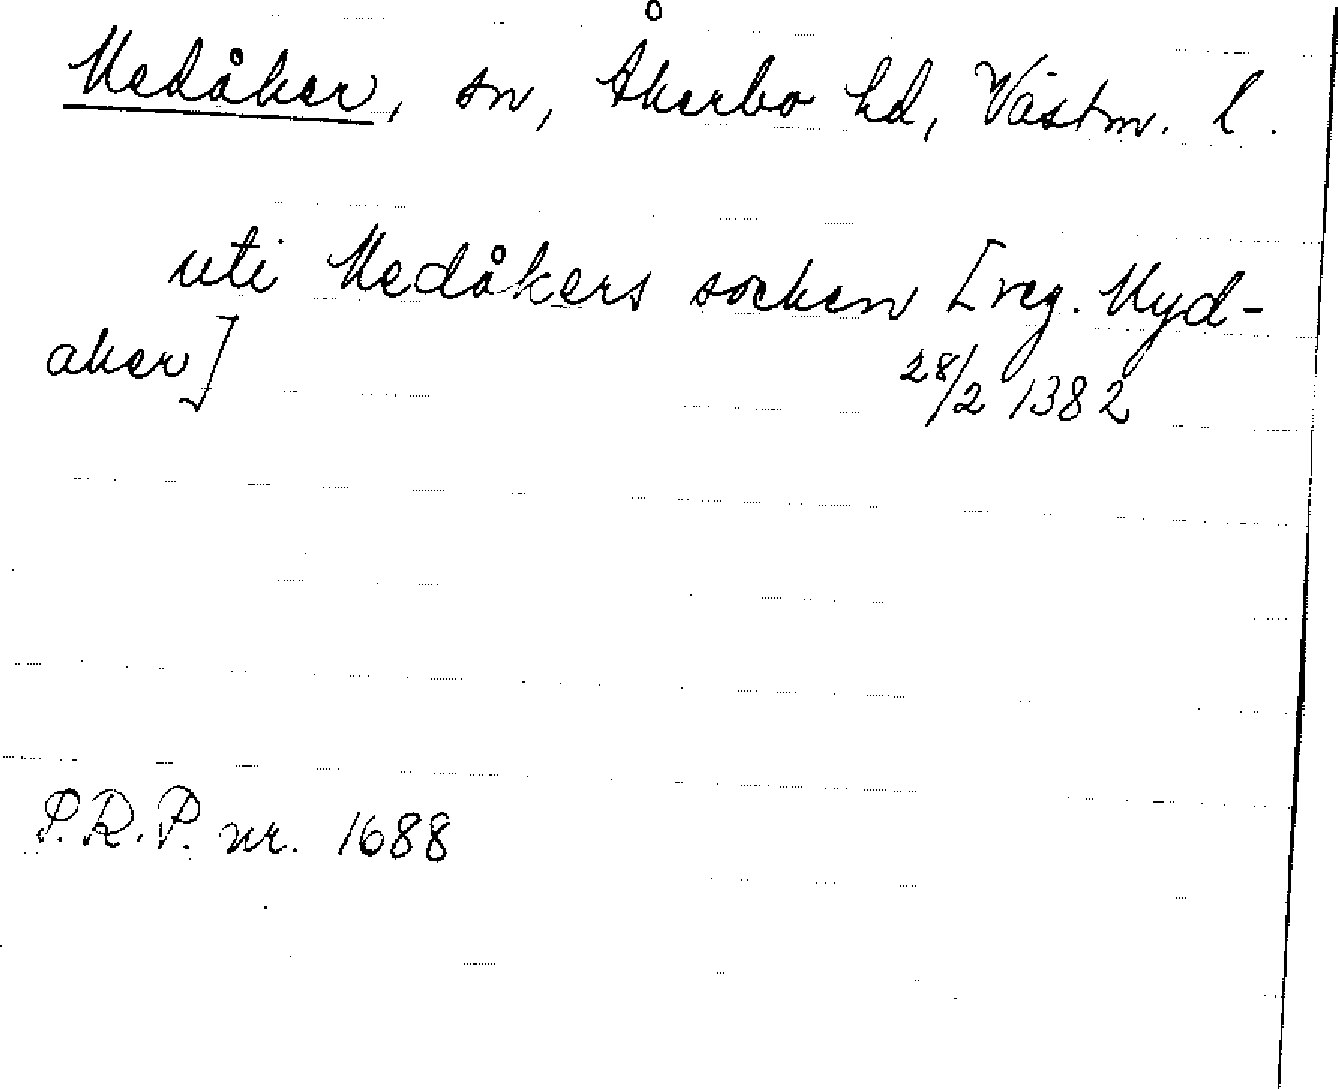 Medåker, sn, Åkerbo hd, Västm. l.
uti Medåkers socken [reg. Myd-
aker]
28/2 1382
P.R.P. nr. 1688